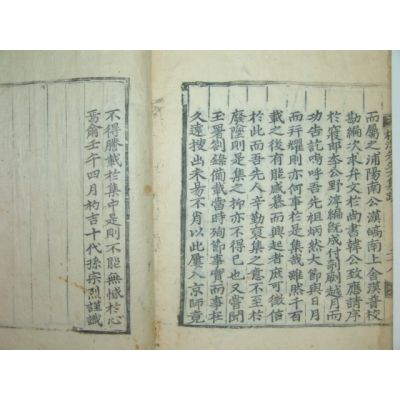 而屬之浦陽南公漢㬎南上舍漢音校
勘編次求弁文於尚書韓公致應請序
於寢郎李公野淳編旣成付剞劂越月而
功告訖嗚呼吾先祖炳然大節與日月
而幷耀則亦何事於是集哉雖然千百
載之後有能感慕而興起者庶可徵信
於此而吾先人辛勤裒集之意不至於
廢墜則是集之抑亦不得已也又嘗聞
玉署劉錄備載當時殉節事實而事在
久遠搜出未易不肖以此屢入京師竟
不得謄載於集中是則不能無憾於心
焉爾壬午四月初吉十代孫宗烈謹識